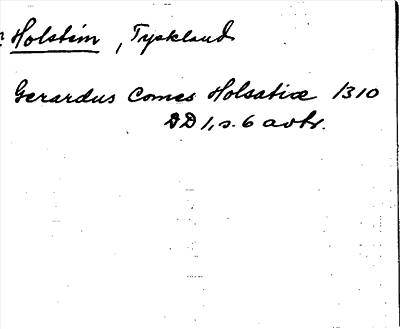 Holstein, Tyskland
Gerardus Comes Holsatiæ 1310
DD 1, s. 6 avtr.